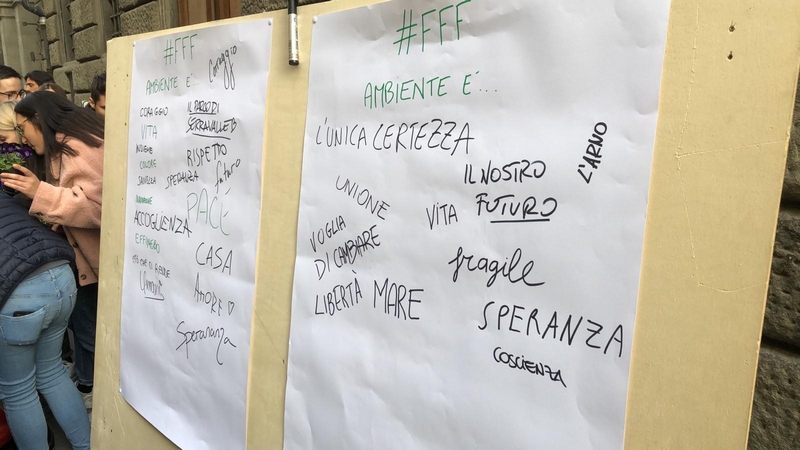 #FFF
AMBIENTE E'
Coraggio
CORAGGIO
VITA
INSIEME
COLORE
SPERANZA
ACCOGLIENZA
IL PARCO DI
SERRAVALLE
RISPETTO
futuro
PACE
CASA
AMORE ♡
Speranza
#FFF
AMBIENTE E'...
L'UNICA CERTEZZA
L'ARNO
IL NOSTRO
FUTURO
UNIONE
VITA
VOGLIA
DI CAMBIARE
fragile
LIBERTÀ MARE
SPERANZA
COSCIENZA